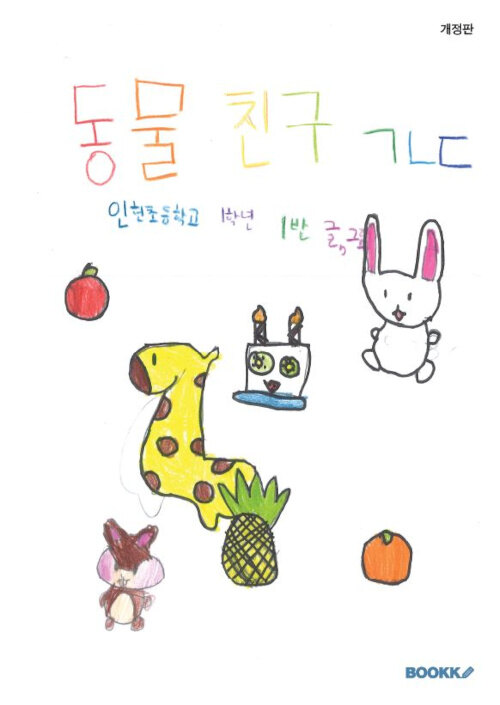 개정판
동물 친구 ㄱㄴㄷ
인현초등학교 1학년 1반 글,그림
BOOKK